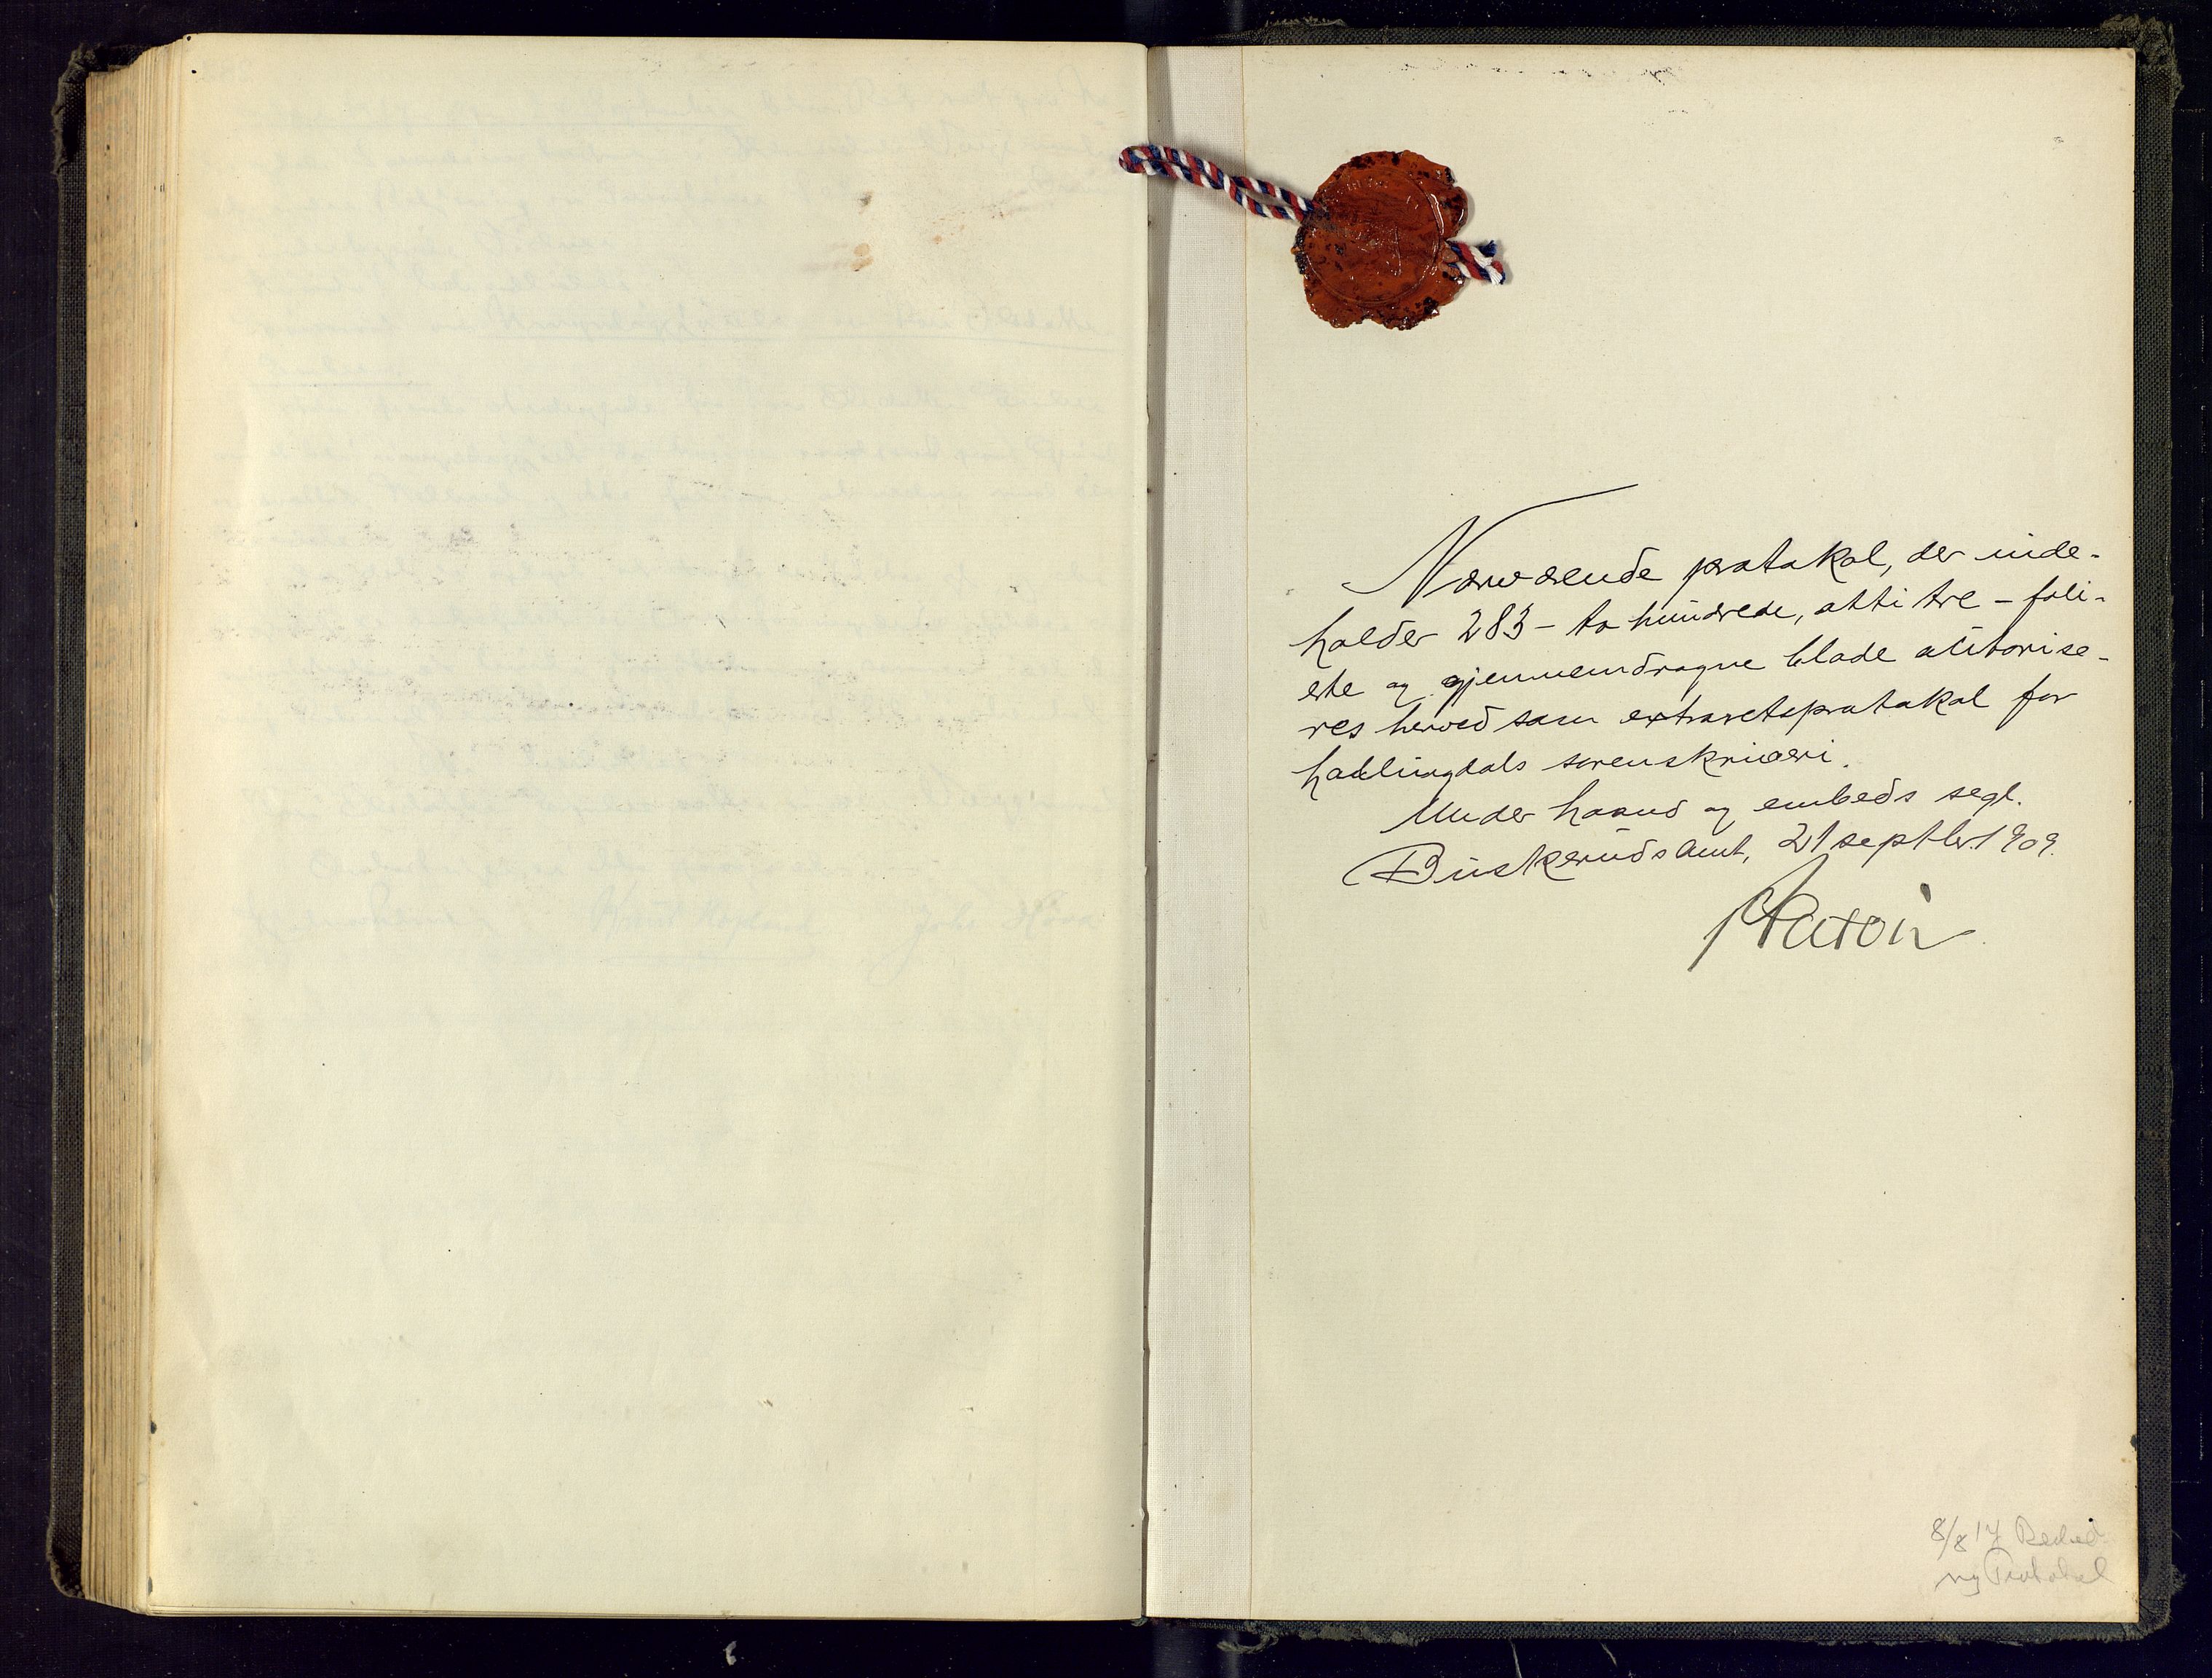 Nærværende protokol, der inde-
holder 283 - to hundrede, otti tre - foli-
erte og gjennemdragne blade autorise-
res herved som extraretsprotokol for
hallingdals sorenskriveri.
Under haand og embeds segl.
Buskeruds Amt, 21 septbr 1909.
8/8 17
ny Protokol